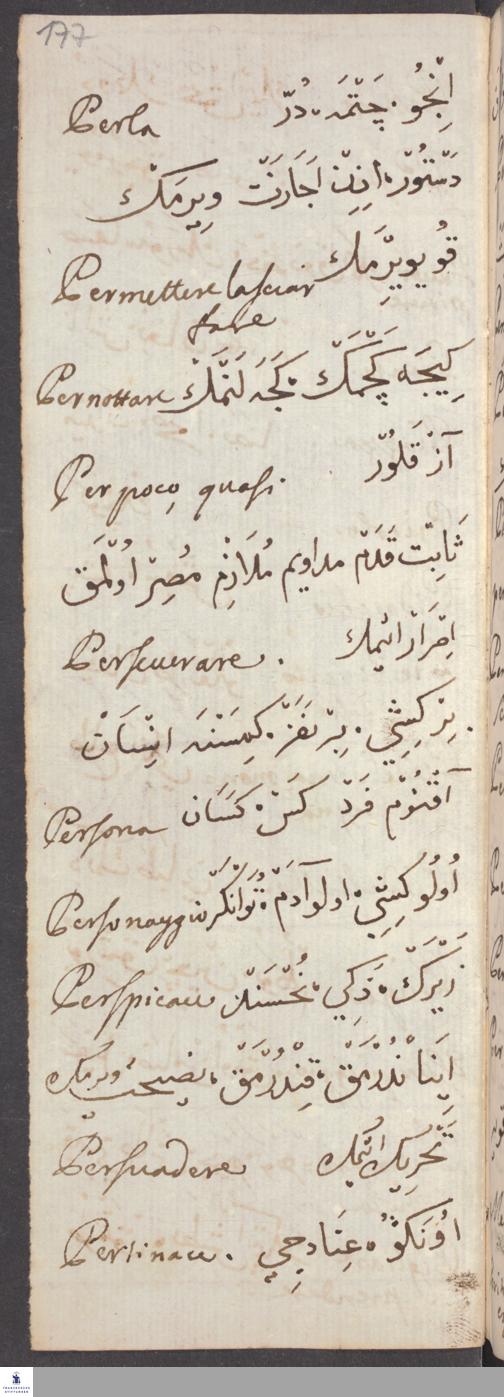 177
Perla اِنْجُو . چَتْمَه . دُرّ
دَسْتُوْرْ اِذِنْ اِجَازَتْ وِيرِمَكْ
قُويوِيرْمَك
Permettere lasciar
fare
Pernottare كِيجَه كَچْمَكْ . كَجَه لَنْمَكْ
Per poco, quasi . آزْ قَلُوْرْ
ثَابِتْ قَدَمْ مداويم مُلَازِمْ مُصِرْ اُولْمَقْ
Perseverare . اِصْرَارْ ائتمك
بِرْ كِيشِي . بِرْ نَفَرْ . كِمِسَنَه اِنْسَانْ
Persona اُقْنُوْمْ فَرْدْ كَسْ . كَسَان
Personaggio اُولُو كِيشِي . اولو آدَمْ . تُوَانْكَرْ
Perspicace زِيرَكْ . ذَكِي .
اِينَانْدُرْمَقْ . قَنْدُرْمَقْ . نصيحت ويرمك
Persuadere تَحْرِيك اتْمِك
Pertinace . عِنَادجِي